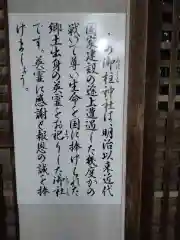 この御柱神社は、明治以来近代
国家建設の途上遭遇した幾度かの
戦いで尊い生命を国に捧げられた
郷土出身の英霊をお祀りした御社
です。英霊に感謝と報恩の誠を捧
げましょう。